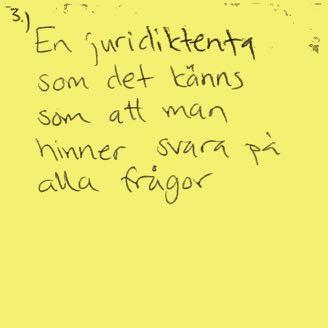 3.)
En juridiktenta
som det känns
som att man
hinner svara på
alla frågor